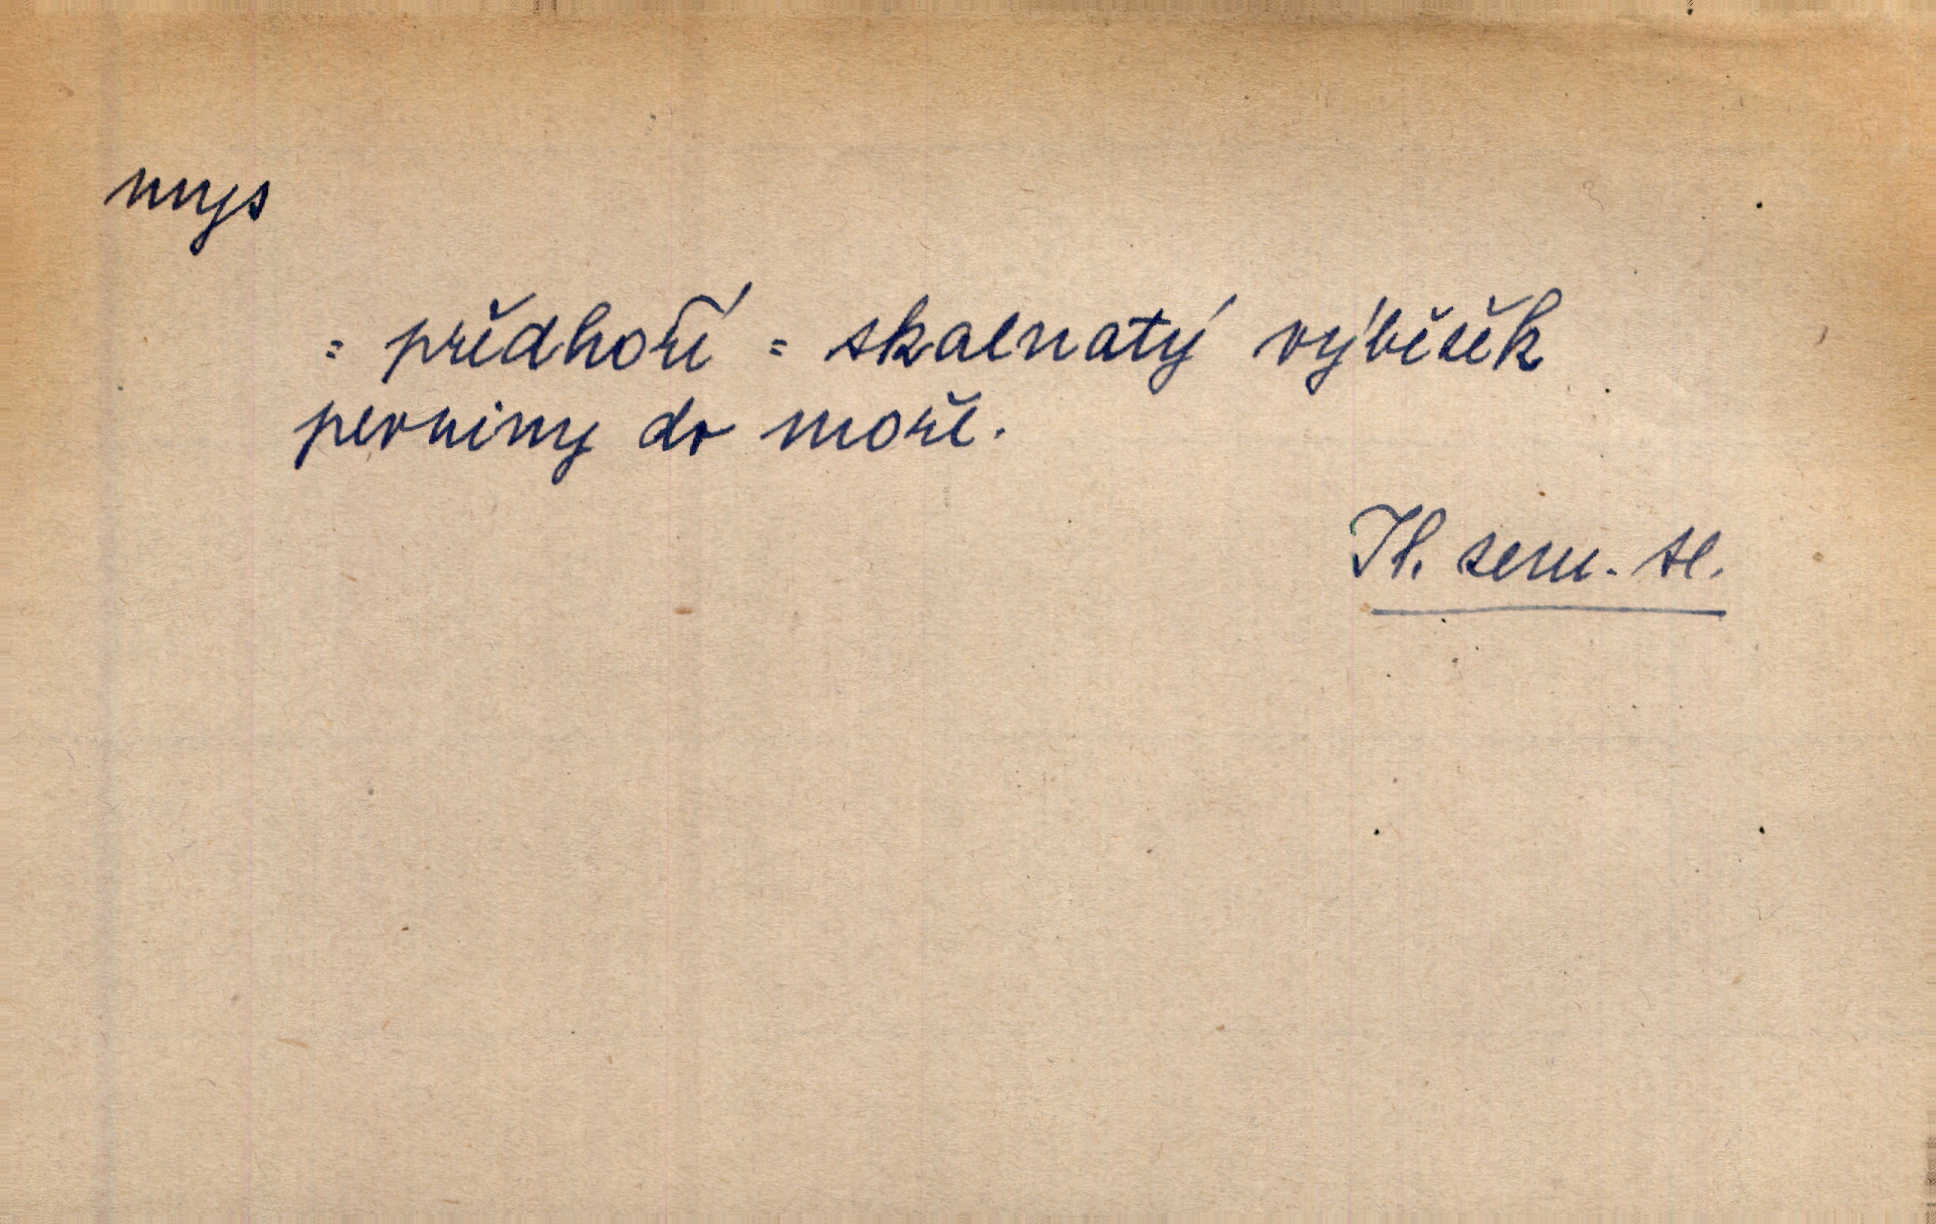 mys
= předhoří = skalnatý výběžek
pevniny do moře.
Kl. zem. sl.